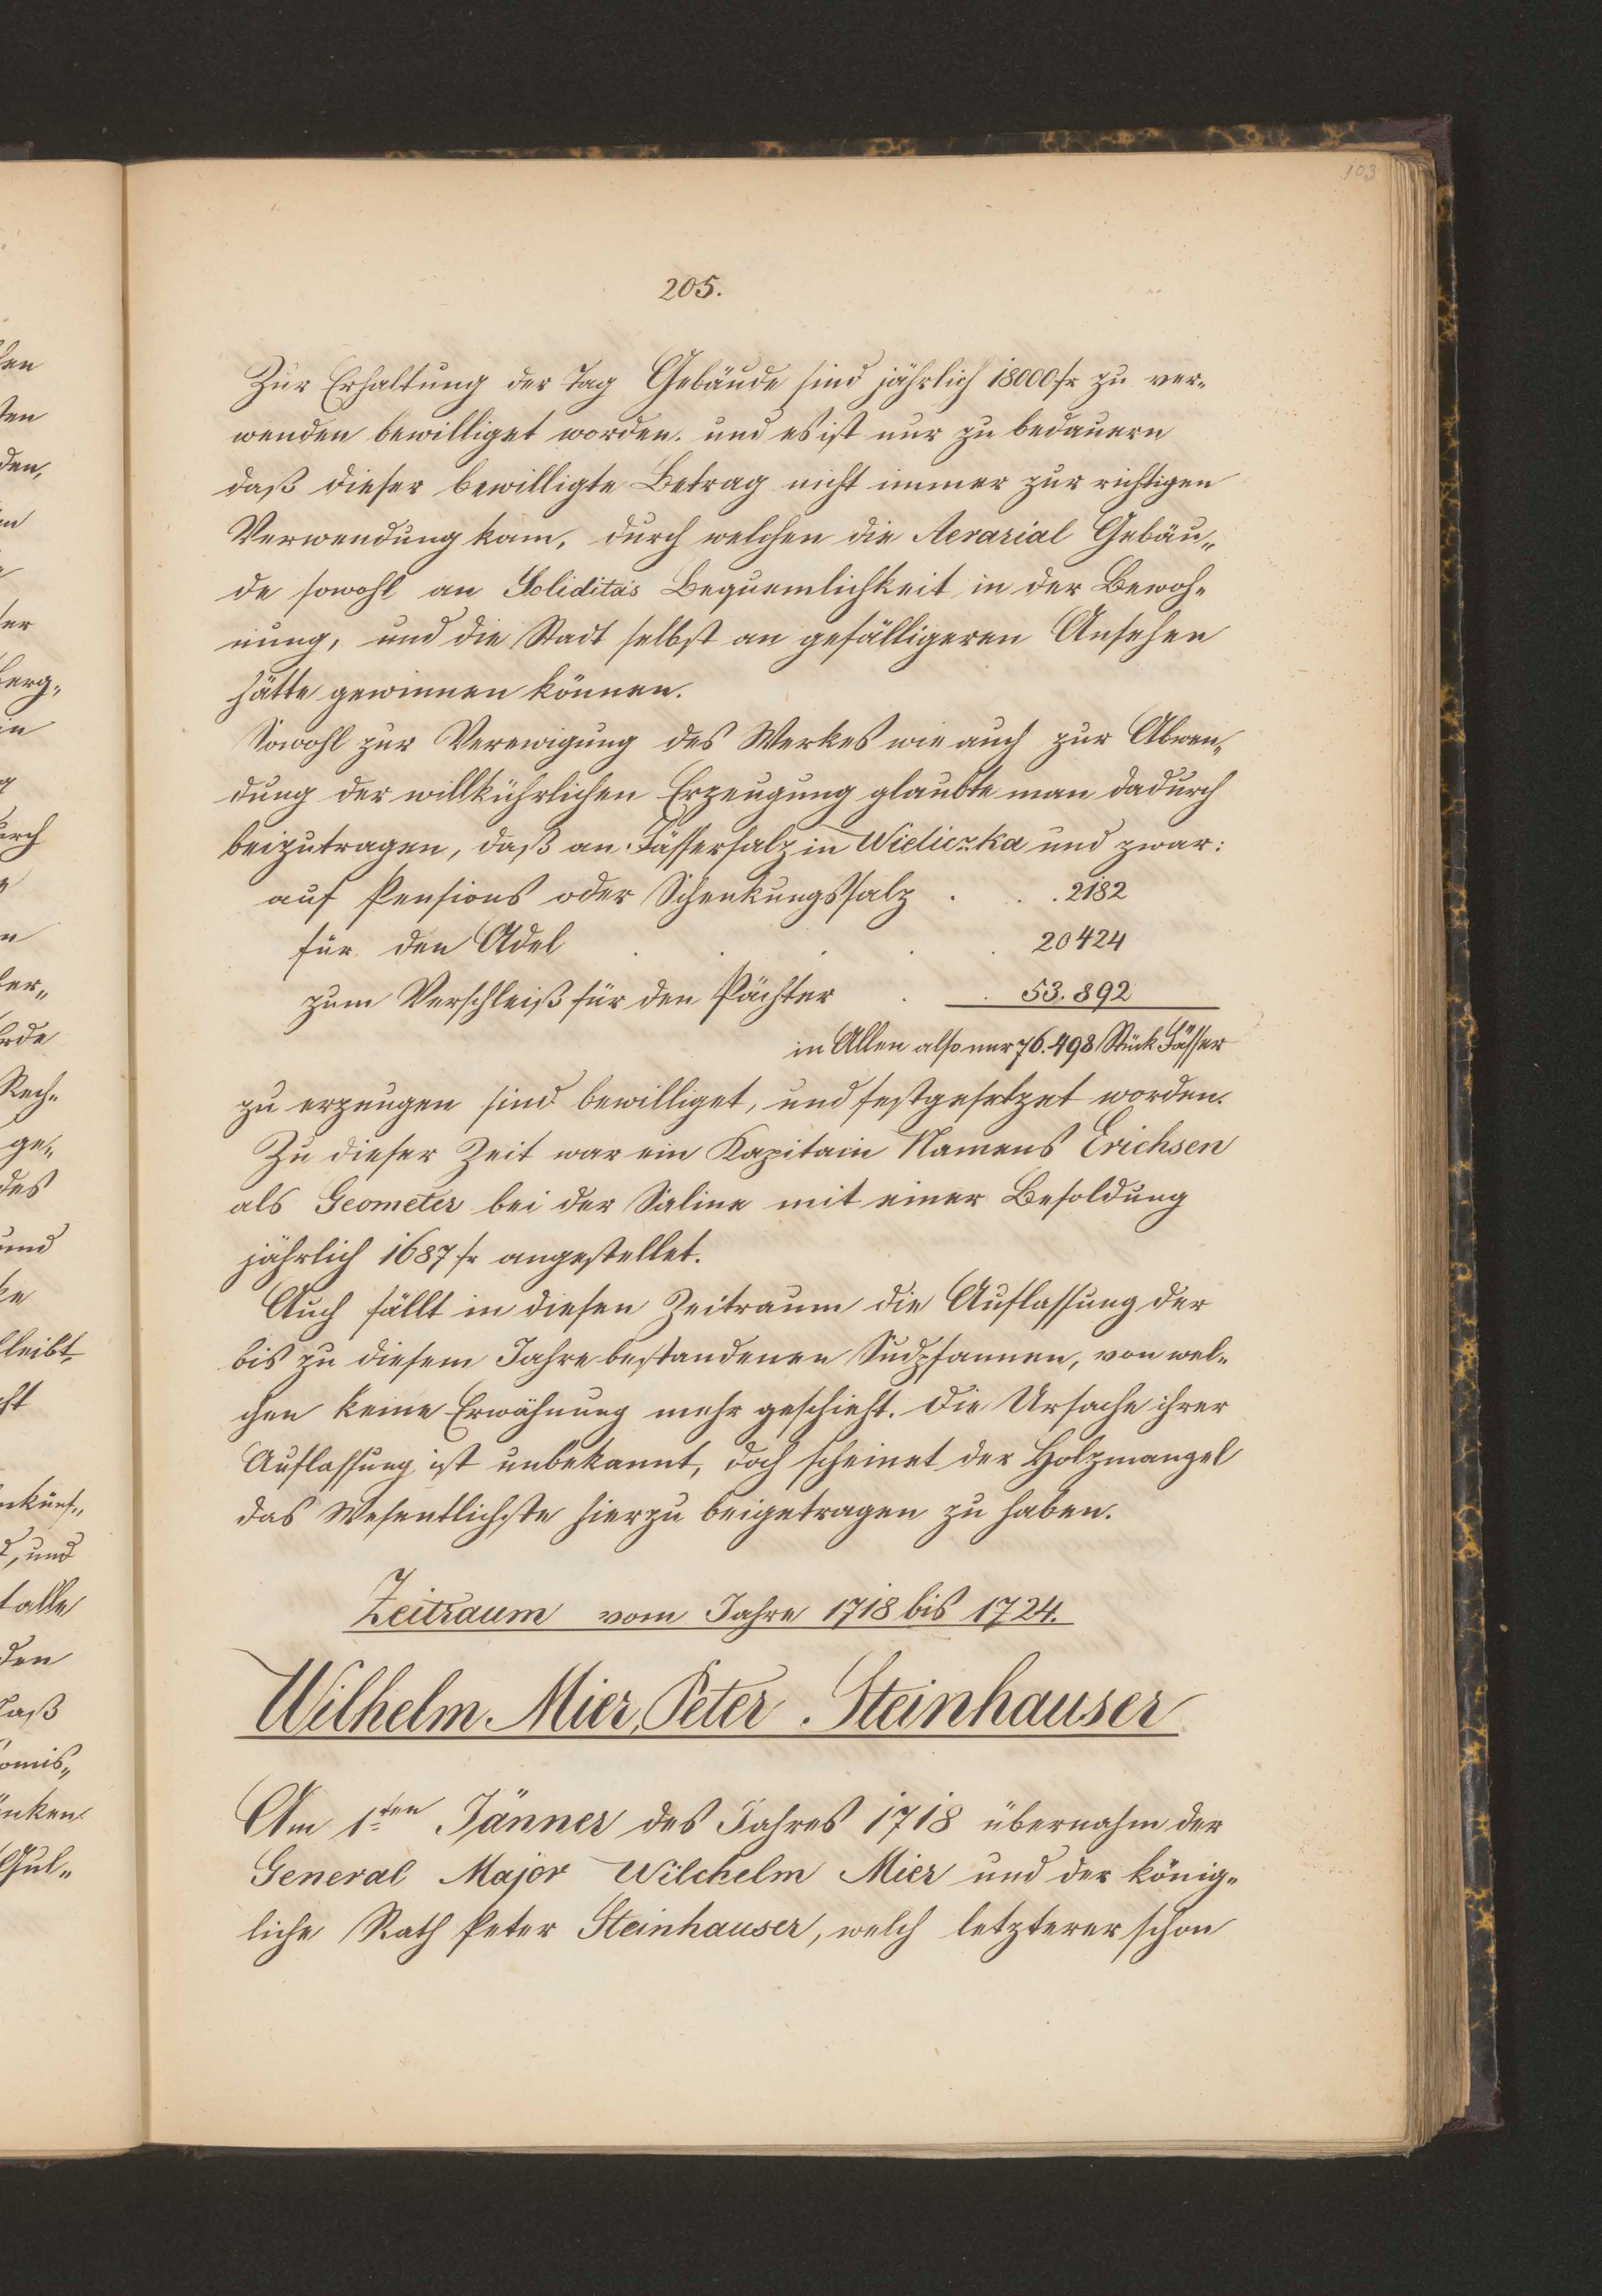 103
205.
Zur Erhaltung der Tag Gebäude sind jährlich 18000 fr zu ver-
wenden bewilliget worden. und es ist nur zu bedauern
daß dieser bewilligte Betrag nicht immer zur richtigen
Verwendung kam, durch welchen die Aerarial Gebäu-
de sowohl an Soliditäs Bequemlichkeit in der Bewoh-
nung, und die Stadt selbst an gefälligeren Ansehen
hätte gewinnen können.
Sowohl zur Verewigung des Werkes wie auch zur Abwen-
dung der willkührlichen Erzeugung glaubte man dadurch
beizutragen, daß an Fässersalz in Wieliczka und zwar:
auf Pensions oder Schenkungssalz . . . 2182
für den Adel . . . . . 20424
zum Verschleiß für den Pächter . . 53.892
in Allen also nur 76.498 Stück Fässer
zu erzeugen sind bewilliget, und festgesetzet worden.
Zu dieser Zeit war ein Kapitain Namens Erichsen
als Geometer bei der Saline mit einer Besoldung
jährlich 1687 fr angestellet.
Auch fällt in diesen Zeitraum die Auflassung der
bis zu diesem Jahre bestandenen Sudpfannen, von wel-
chen keine Erwähnung mehr geschieht. Die Ursache ihrer
Auflassung ist unbekannt, doch scheinet der Holzmangel
das Wesentlichste hierzu beigetragen zu haben.
Zeitraum vom Jahre 1718 bis 1724.
Wilhelm Mier, Peter Steinhauser
Am 1ten Jänner des Jahres 1718 übernahm der
General Major Wilchelm Mier und der könig-
liche Rath Peter Steinhauser, welch letzterer schon